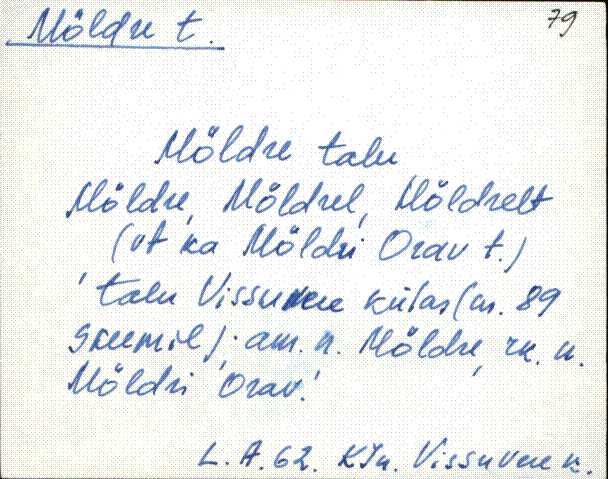 Möldre t. 79
Möldre talu
Möldre, Möldrel, Möldrelt
(vt ka Möldri Orav t.)
talu Vissuvere külas (nr. 89
skeemil); am. n. Möldre, rk. n.
Möldri Orav.
L. A. 62. KJn. Vissuvere k.